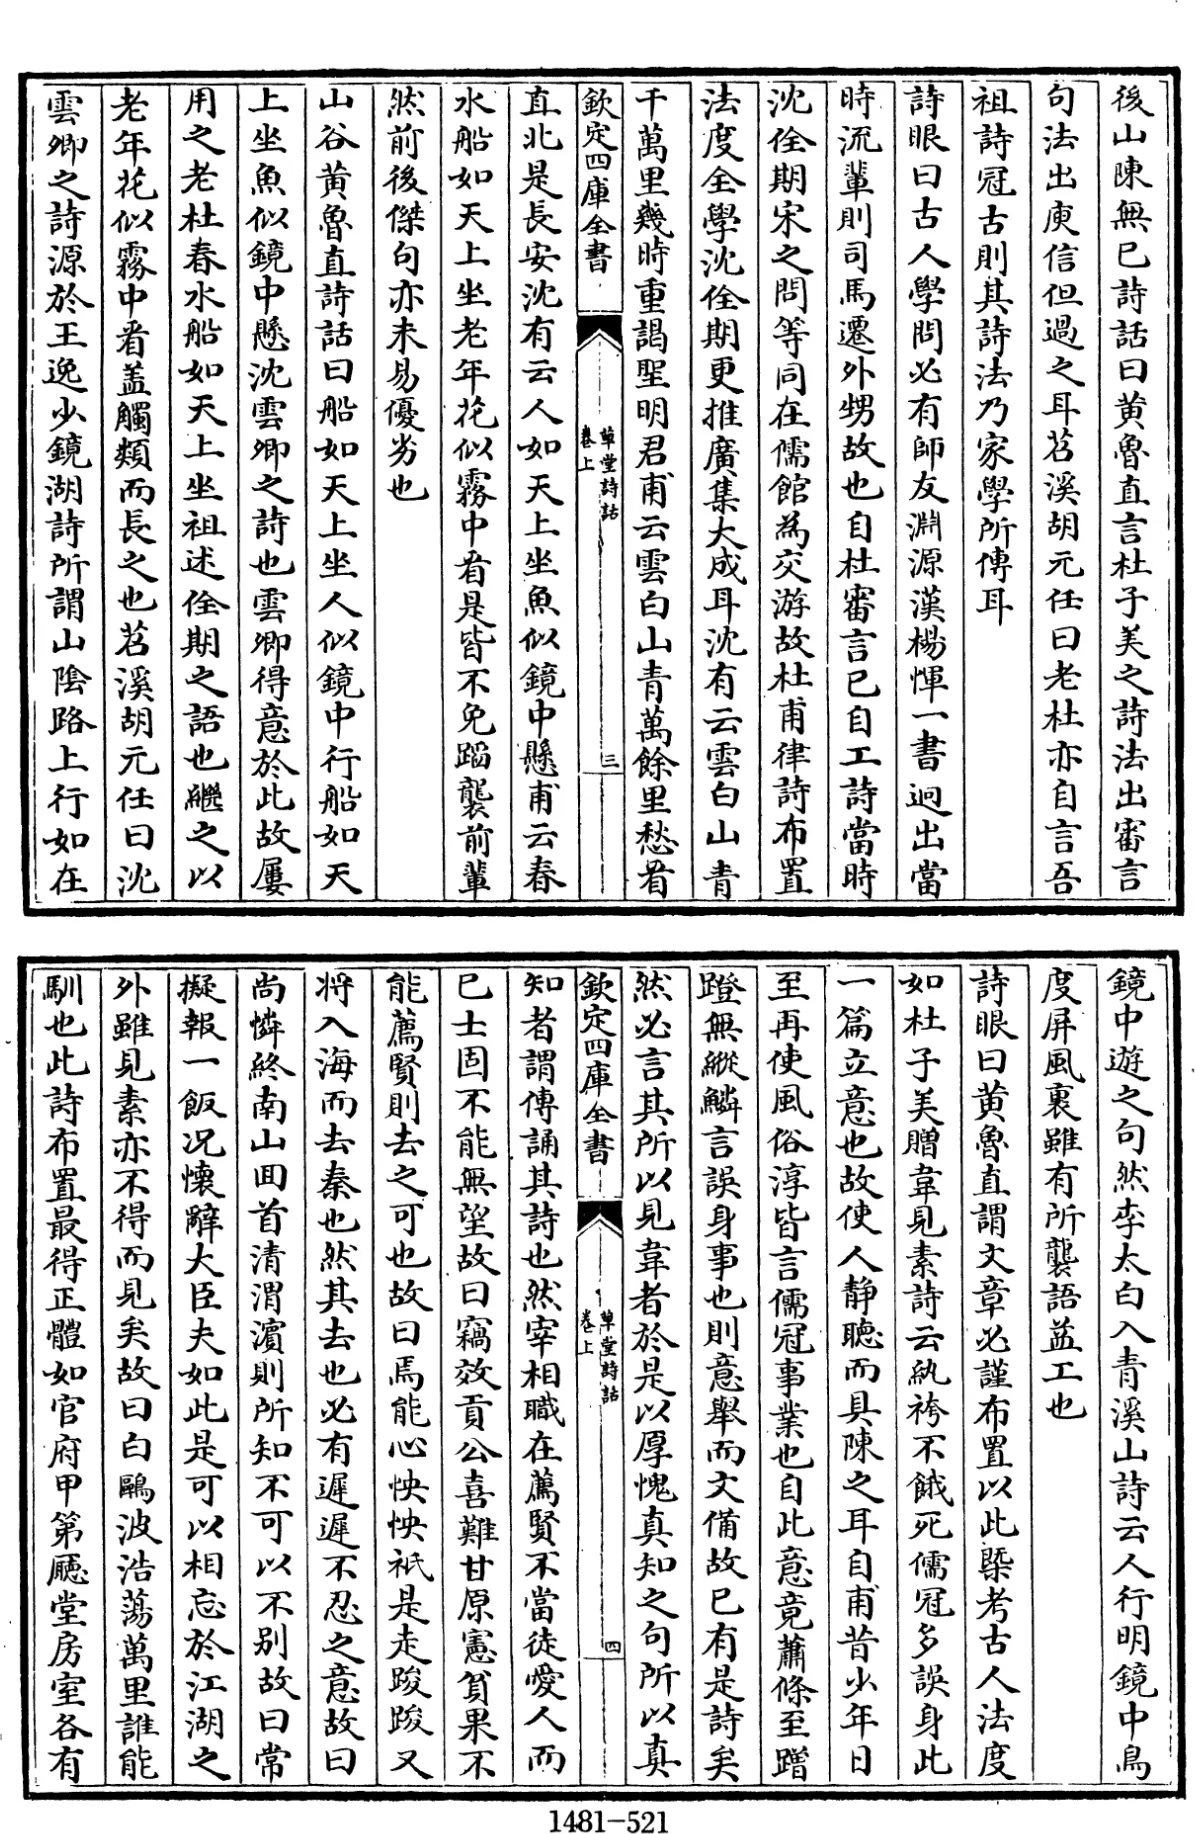 後山陳無已詩話曰黄魯直言杜子美之詩法出審言
句法出庾信但過之耳苕溪胡元任曰老杜亦自言吾
祖詩冠古則其詩法乃家學所傳耳
詩眼曰古人學問必有師友淵源漢楊惲一書迥出當
時流輩則司馬遷外甥故也自杜審言已自工詩當時
沈佺期宋之問等同在儒館為交游故杜甫律詩布置
法度全學沈佺期更推廣集大成耳沈有云雲白山青
千萬里幾時重謁聖明君甫云雲白山青萬餘里愁看
欽定四庫全書
草堂詩話
卷上
三
直北是長安沈有云人如天上坐魚似鏡中懸甫云春
水船如天上坐老年花似霧中看是皆不免蹈襲前軰
然前後傑句亦未易優劣也
山谷黄魯直詩話曰船如天上坐人似鏡中行船如天
上坐魚似鏡中懸沈雲卿之詩也雲卿得意於此故屢
用之老杜春水船如天上坐祖述佺期之語也繼之以
老年花似霧中看盖觸類而長之也苕溪胡元任曰沈
雲卿之詩源於王逸少鏡湖詩所謂山陰路上行如在
鏡中遊之句然李太白入青溪山詩云人行明鏡中鳥
度屏風裏雖有所襲語益工也
詩眼曰黄魯直謂文章必謹布置以此槩考古人法度
如杜子美贈韋見素詩云紈袴不餓死儒冠多誤身此
一篇立意也故使人静聽而具陳之耳自甫昔少年日
至再使風俗淳皆言儒冠事業也自此意竟蕭條至蹭
蹬無縱鱗言誤身事也則意舉而文備故已有是詩矣
然必言其所以見韋者於是以厚愧真知之句所以真
欽定四庫全書
草堂詩話
卷上
四
知者謂傳誦其詩也然宰相職在薦賢不當徒愛人而
已士固不能無望故曰竊效貢公喜難甘原憲貧果不
能薦賢則去之可也故曰焉能心怏怏祇是走踆踆又
將入海而去秦也然其去也必有遲遲不忍之意故曰
尚憐終南山回首清渭濱則所知不可以不别故曰常
擬報一飯况懷辭大臣夫如此是可以相忘於江湖之
外雖見素亦不得而見矣故曰白鷗波浩蕩萬里誰能
馴也此詩布置最得正體如官府甲第㕔堂房室各有
1481-521